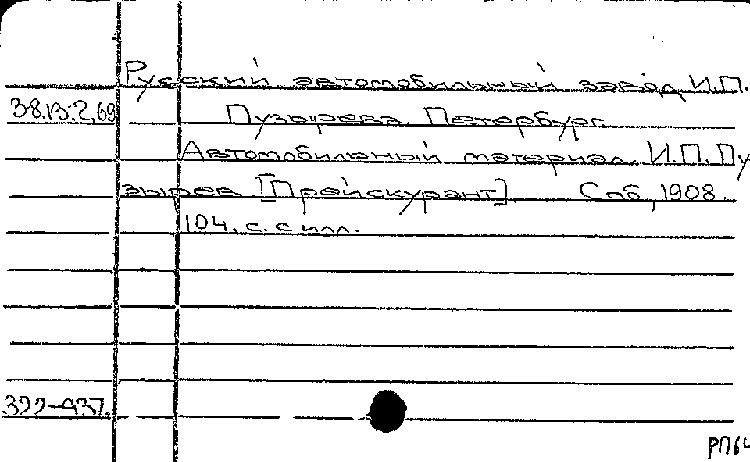 Русский автомобильный завод И.П.
38.13.2,69 Пузырева Петербург.
Автомобильный материал. И.П. Пу
зырев [Прейскурант] Спб, 1908.
104. с. с илл.
322-937.
РП64